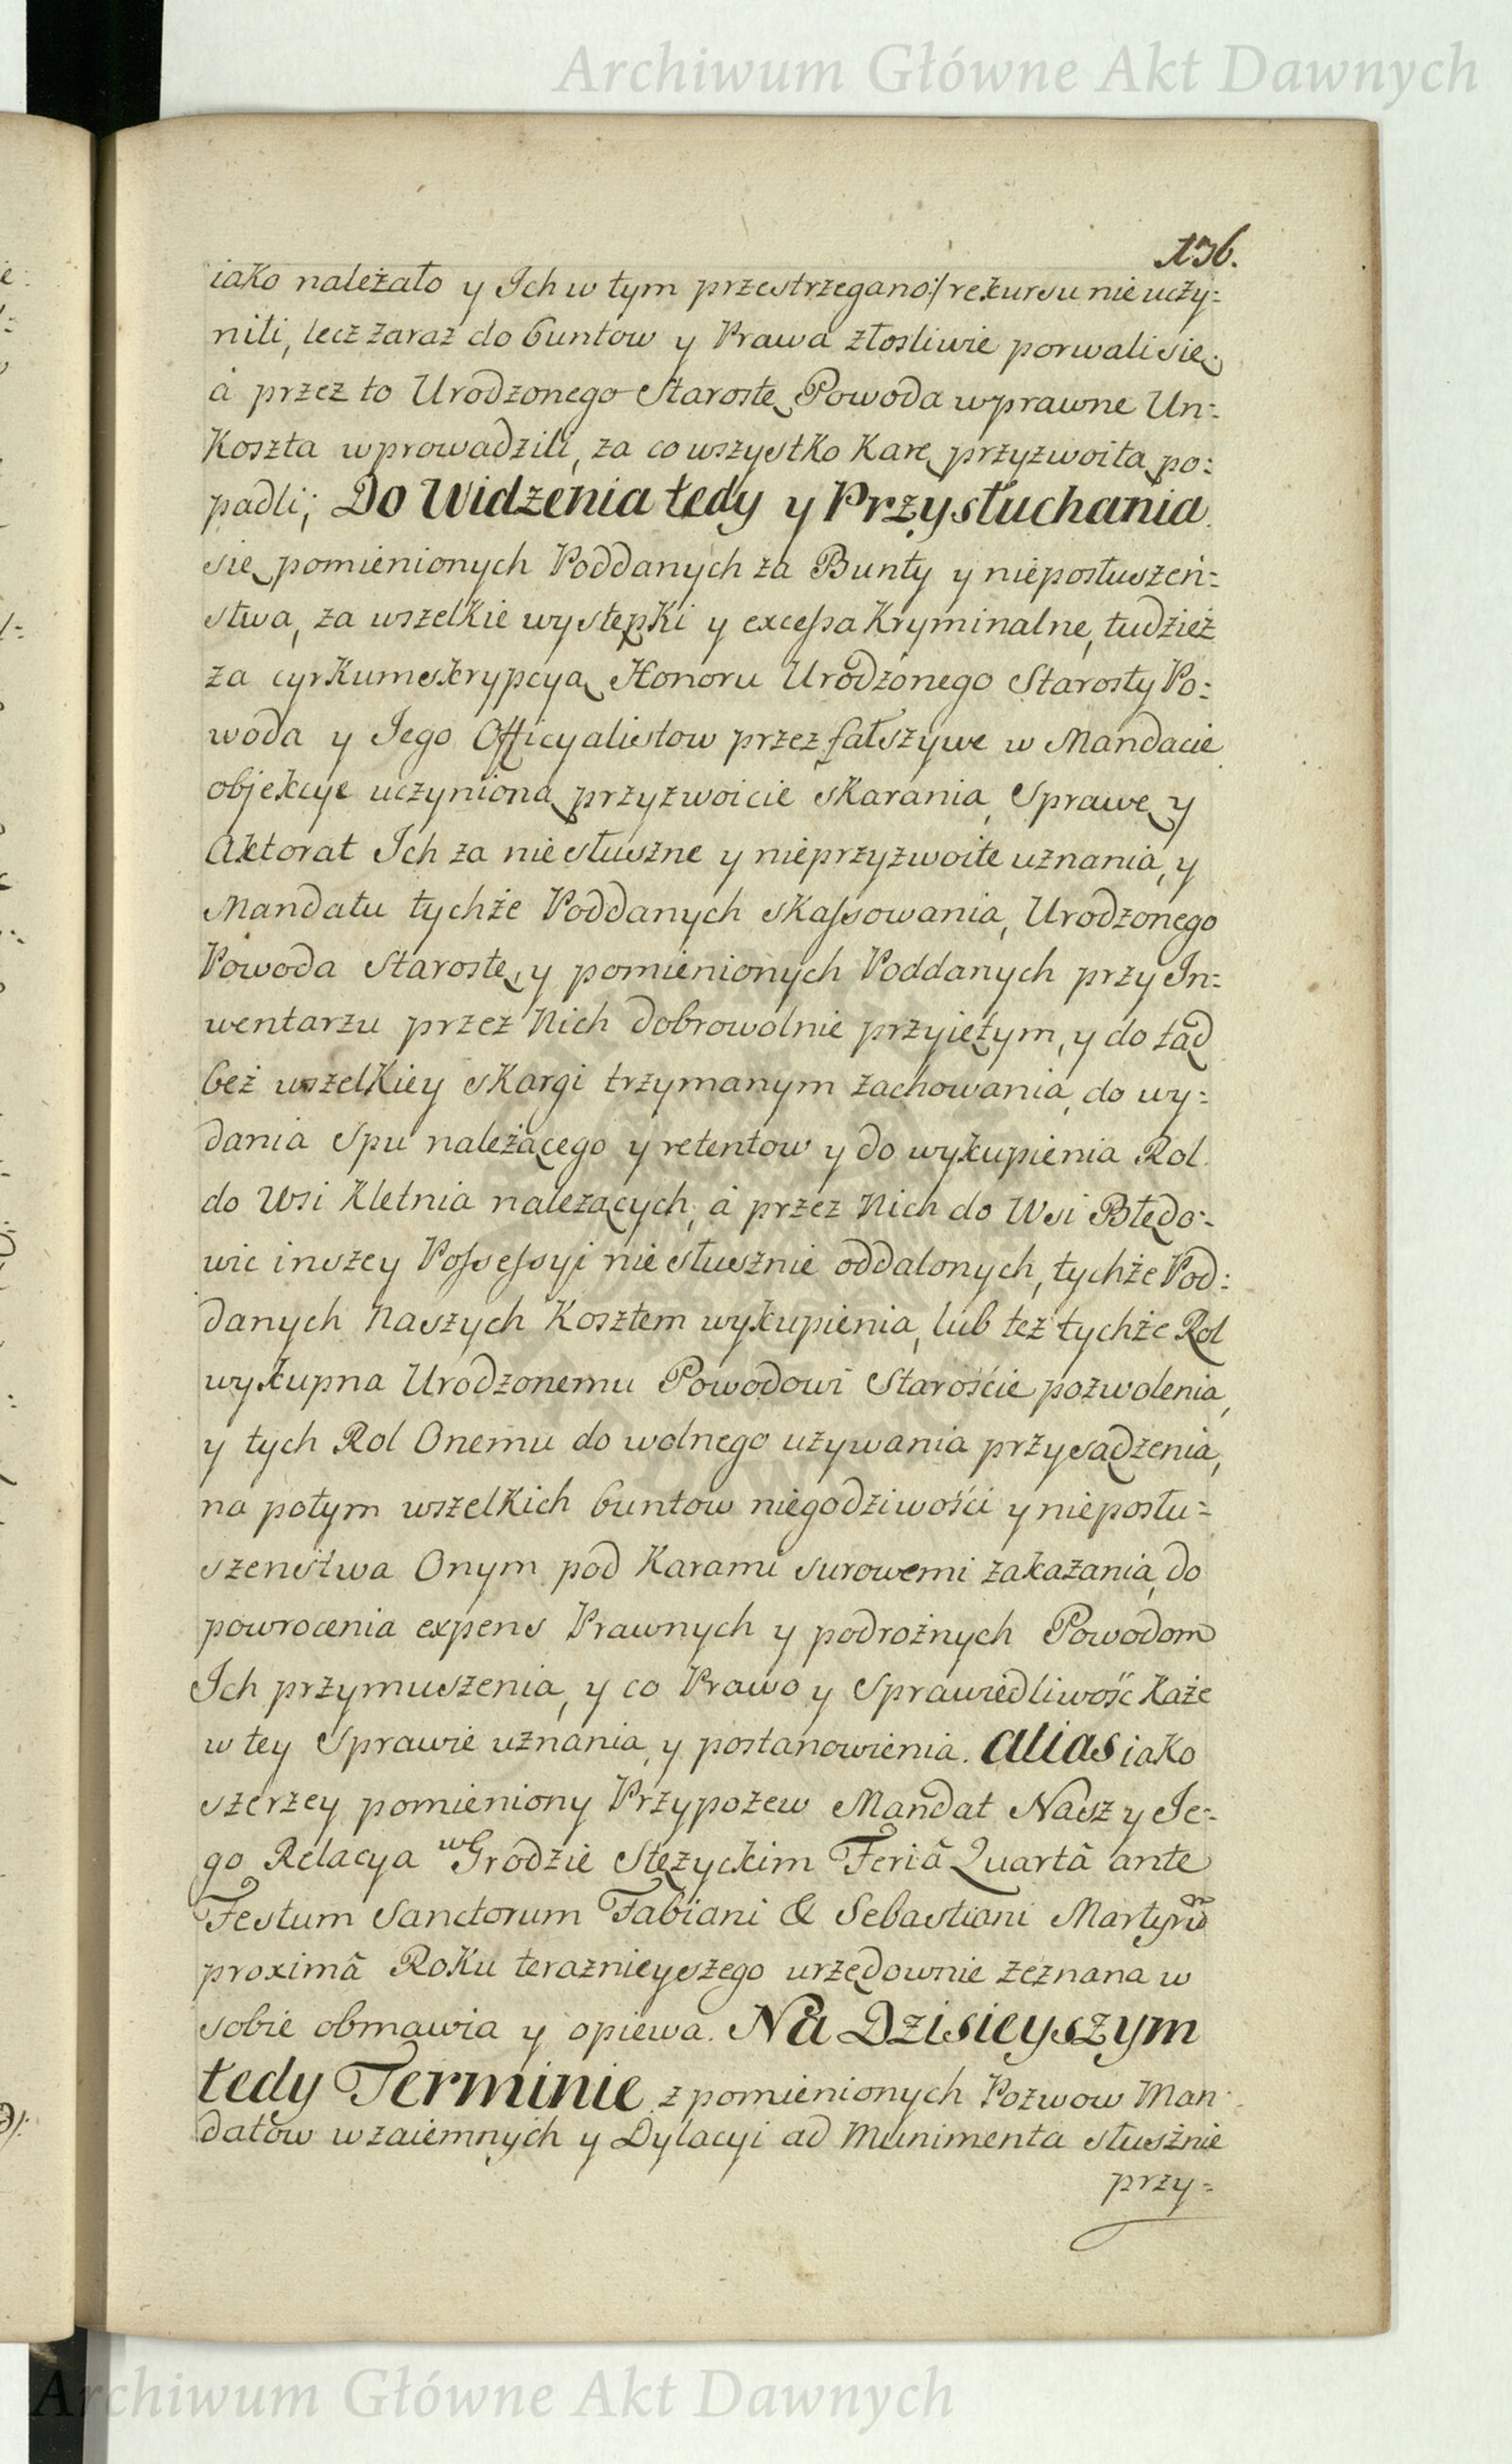 Archiwum Główne Akt Dawnych
136.
iako należało y Ich w tym przestrzegano:/ rekursu nie uczy=
nili, lecz zaraz do buntow y Prawa złosliwie porwali się
á przez to Urodzonego Starostę Powoda w prawne Un=
Koszta wprowadzili, za co wszystko Karę przyzwoitą po=
padli; Do Widzenia tedy y Przysłuchania
się pomienionych Poddanych za Bunty y nieposłuszeń=
stwa, za wszelkie występki y excessa Kryminalne, tudzież
za cyrkumskrypcyą Honoru Urodzonego Starosty Po=
woda y Jego Officyalistow przez fałszywe w Mandacie
objekcye uczynioną przyzwoicie skarania, Sprawę y
Aktorat Ich za niesłuszne y nieprzyzwoite uznania, y
Mandatu tychże Poddanych skassowania, Urodzonego
Powoda Starostę y pomienionych Poddanych przy In=
wentarzu przez Nich dobrowolnie przyiętym, y do tąd
bez wszelkiey skargi trzymanym zachowania, do wy=
dania Spu należącego y retentow y do wykupienia Rol
do Wsi Kletnia należących, á przez Nich do Wsi Błędo=
wic inszey Possessyi niesłusznie oddalonych, tychże Pod=
danych Naszych Kosztem wykupienia, lub też tychże Rol
wykupna Urodzonemu Powodowi Staroście pozwolenia,
y tych Rol Onemu do wolnego używania przysądzenia,
na potym wszelkich buntow niegodziwości y niepostu=
szenstwa Onym pod Karami surowemi zakazania, do
powrocenia expens Prawnych y podrożnych Powodom
Ich przymuszenia, y co Prawo y Sprawiedliwość Każe
w tey Sprawie uznania, y postanowienia. alias iako
szerzey pomieniony Przypozew Mandat Nasz y Je=
go Relacya w Grodzie Stężyckim Feriâ Quartâ ante
Festum Sanctorum Fabiani & Sebastiani Martyrũ
proximâ Roku teraznieyszego urzędownie zeznana w
sobie obmawia y opiewa. Na Dzisieyszym
tedy Terminie z pomienionych Pozwow Man=
datow wzaiemnych y Dylacyi ad Munimenta słusznie
przy=
Archiwum Główne Akt Dawnych